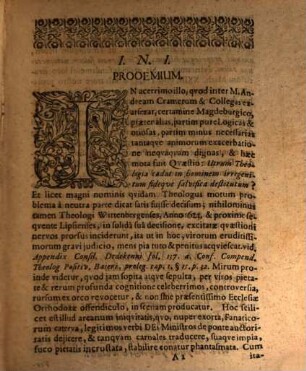 I. N. I.
PROOEMIUM.
IN acerrimo illo, qvod inter M. An-
dream Cramerum & Collegas ex-
 certamine Magdeburgico,
præter alias, partim pure Logicas &
otiosas, partim minus necessarias
tantaqve animorum exacerbatio-
ne neqvaqvam dignas, & hæc
mota fuit Qvæstio: Utrum Theo-
logia cadat in hominem irregeni-
tum fideqve salvifica destitutum?
Et licet magni nominis qvidam Theologus motum
problema à neutra parte dicat satis fuisse decisum; nihilominus
tamen Theologi Wittenbergenses, Anno 1625, & proximè se-
qvente Lipsienses, in solida sui decisione, excitatæ qvæstioni
nervos prorsus inciderunt, ita ut in hoc, virorum eruditissi-
morum gravi judicio, mens pia tuto & penitus acqviescat, vid.
Appendix Consil. Dedekenni fol. 137. & Conf. Compend.
Theolog. Positiv. Baieri, proleg. cap. 1. §. 31. p. 52. Mirum pro-
inde videtur, qvod jam sopita atqve sepulta, per viros, pieta-
te & rerum profunda cognitione celeberrimos, controversia,
rursum ex orco revocetur, & non sine præsentissimo Ecclesiæ
Orthodoxæ offendiculo, in scenam producatur. Hoc scili-
cet est illud arcanum iniqvitatis, qvo, nuper exorta, Fanatico-
rum caterva, legitimus verbi DEI Ministros de ponte auctori-
tatis dejicere, & tanqvam carnales traducere, suaqve impia,
fuco pietatis incrustata, stabilire conatur phantasmata. Cum
A 2 ita-